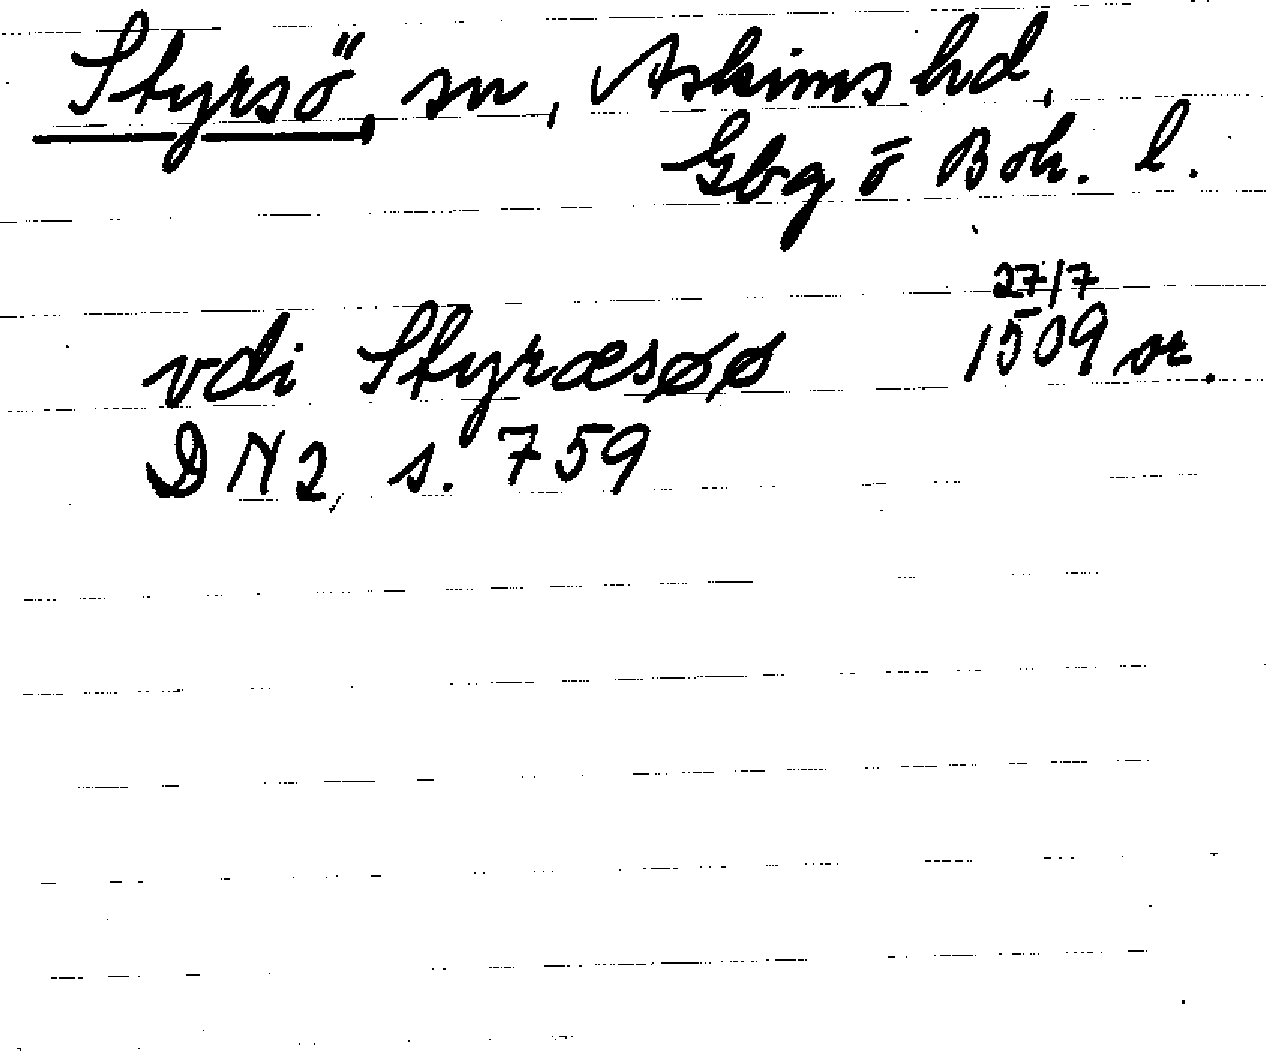 Styrsö, sn, Askims hd,
Gbg o Boh. l.
27/7
vdi Styræsøø 1509 or.
DN 2, s. 759